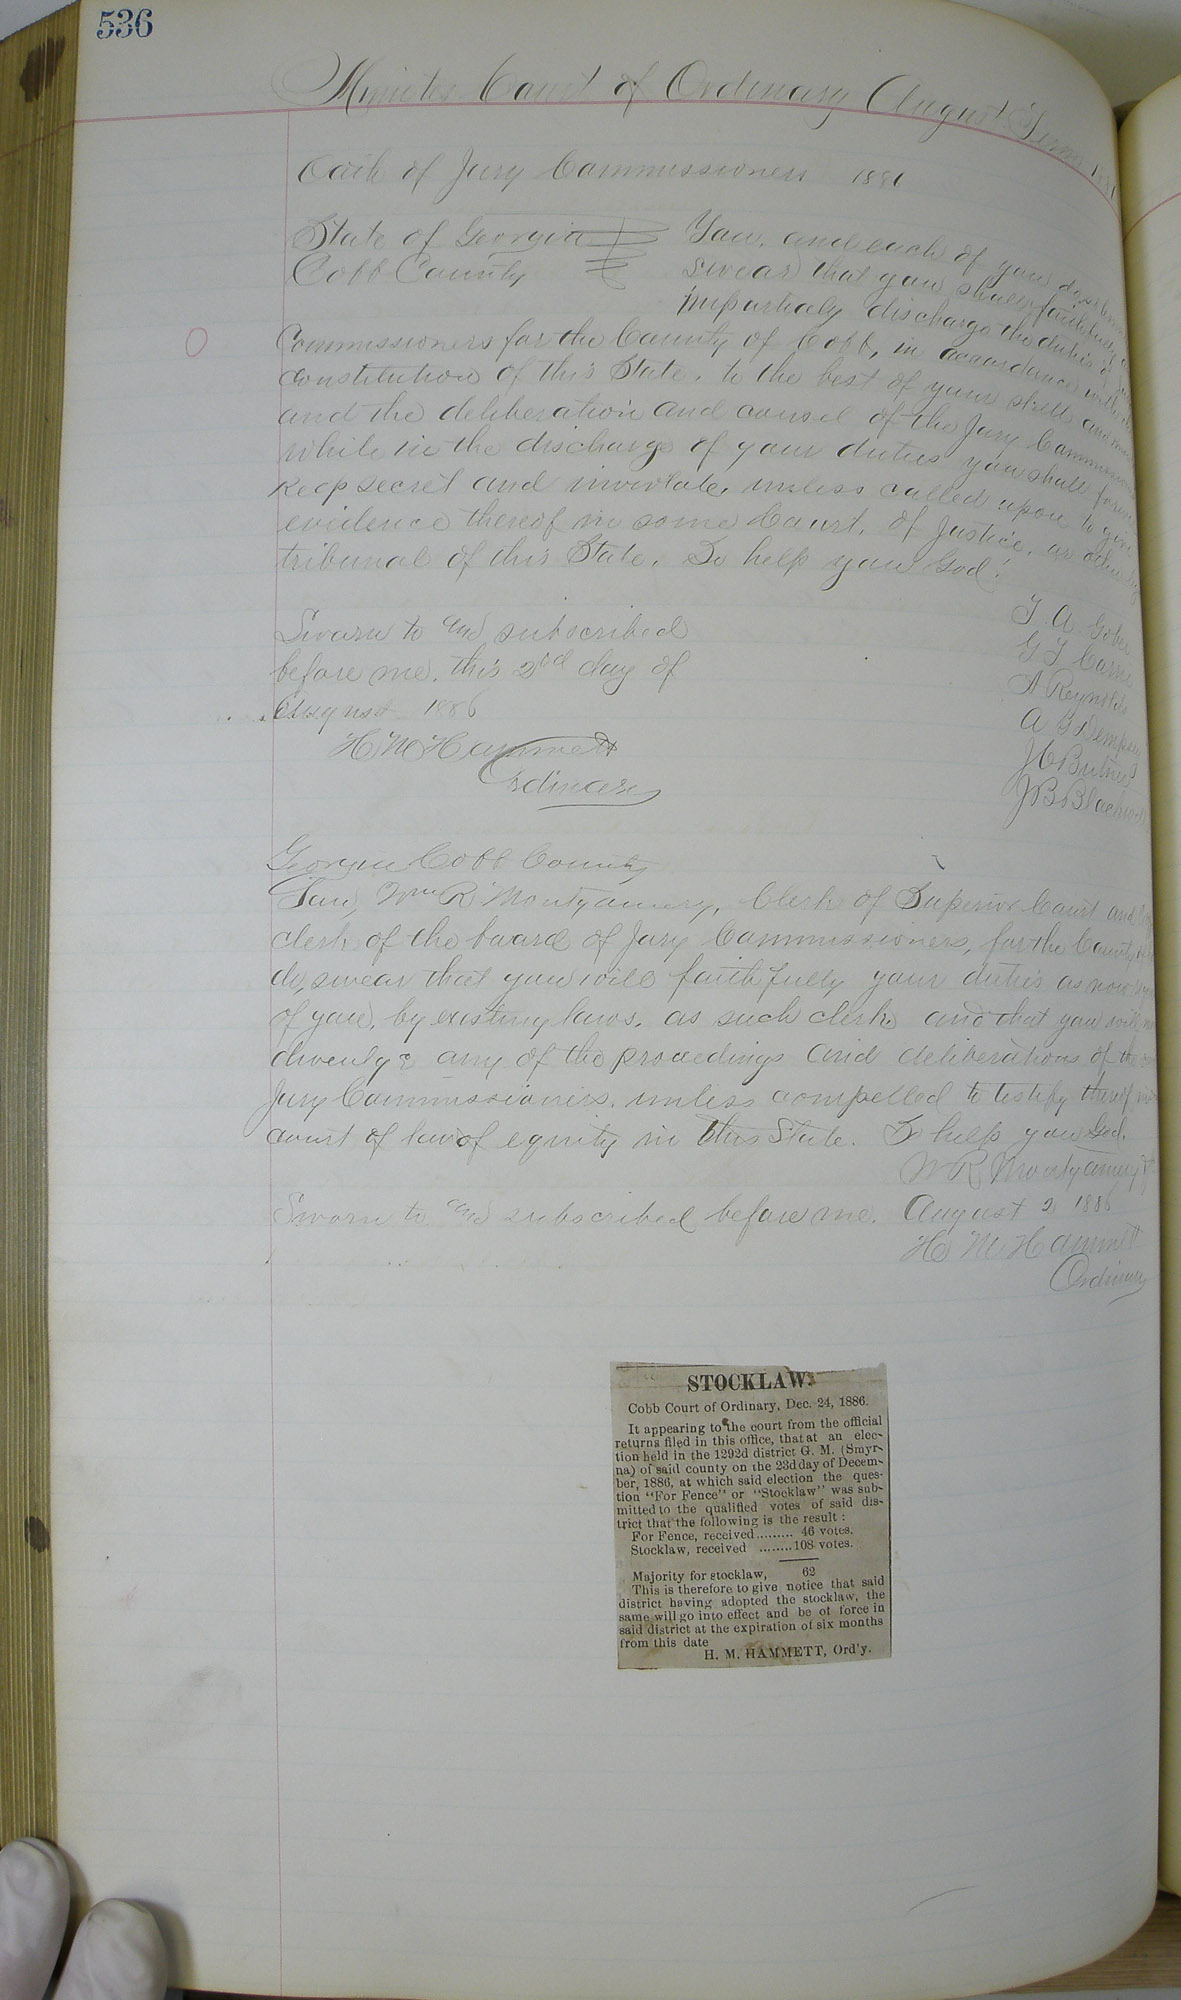 536
Minutes Court of Ordinary August Term
Oath of Jury Commissioners 1886
State of Georgia You, and each of you do
Cobb County swear that you shall faithfully
impartialy discharge the duties of
Commissioners for the County of Cobb, in accordance with
constitution of this State. to the best of your skill and
and the deliberation and counsel of the Jury
while in the discharge of your duties you shall
Keep secret and inviolate, unless called upon to give
evidence thereof in some Court, of Justice, or other
tribunal of this State. So help you God.
Sworn to and subscribed
before me, this 2nd day of
August 1886
H M Hammett
Ordinary
T. A Gober
G T
A Reynolds
A G Dempsey
J C Butner
J B
Georgia Cobb County
You, Wm R Montgamery, Clerk of Superior Court and
clerk of the board of Jury Commissioners, for the County
do, swear that you will faithfully your duties as now
of you, by existing laws, as such clerk and that you will
any of the procedings and deliberations of the
Jury Commissioners, unless compelled to testify thereof
court of law of equity in this State. So help you God.
W R Montgamery
Sworn to and subscribed before me. August 2 1886
H M Hammett
Ordinary
STOCKLAW.
Cobb Court of Ordinary, Dec. 24, 1886.
It appearing to the court from the official
returns filed in this office, that at an elec-
tion held in the 1292d district G. M. (Smyr-
na) of said county on the 23d day of Decem-
ber, 1886, at which said election the ques-
tion "For Fence" or "Stocklaw" was sub-
mitted to the qualified votes of said dis-
trict that the following is the result :
For Fence, received......... 46 votes.
Stocklaw, received ........108 votes.
Majority for stocklaw, 62
This is therefore to give notice that said
district having adopted the stocklaw, the
same will go into effect and be of force in
said district at the expiration of six months
from this date
H. M. HAMMETT, Ord'y.